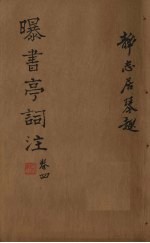 靜志居琴趣
曝書亭詞注
卷四